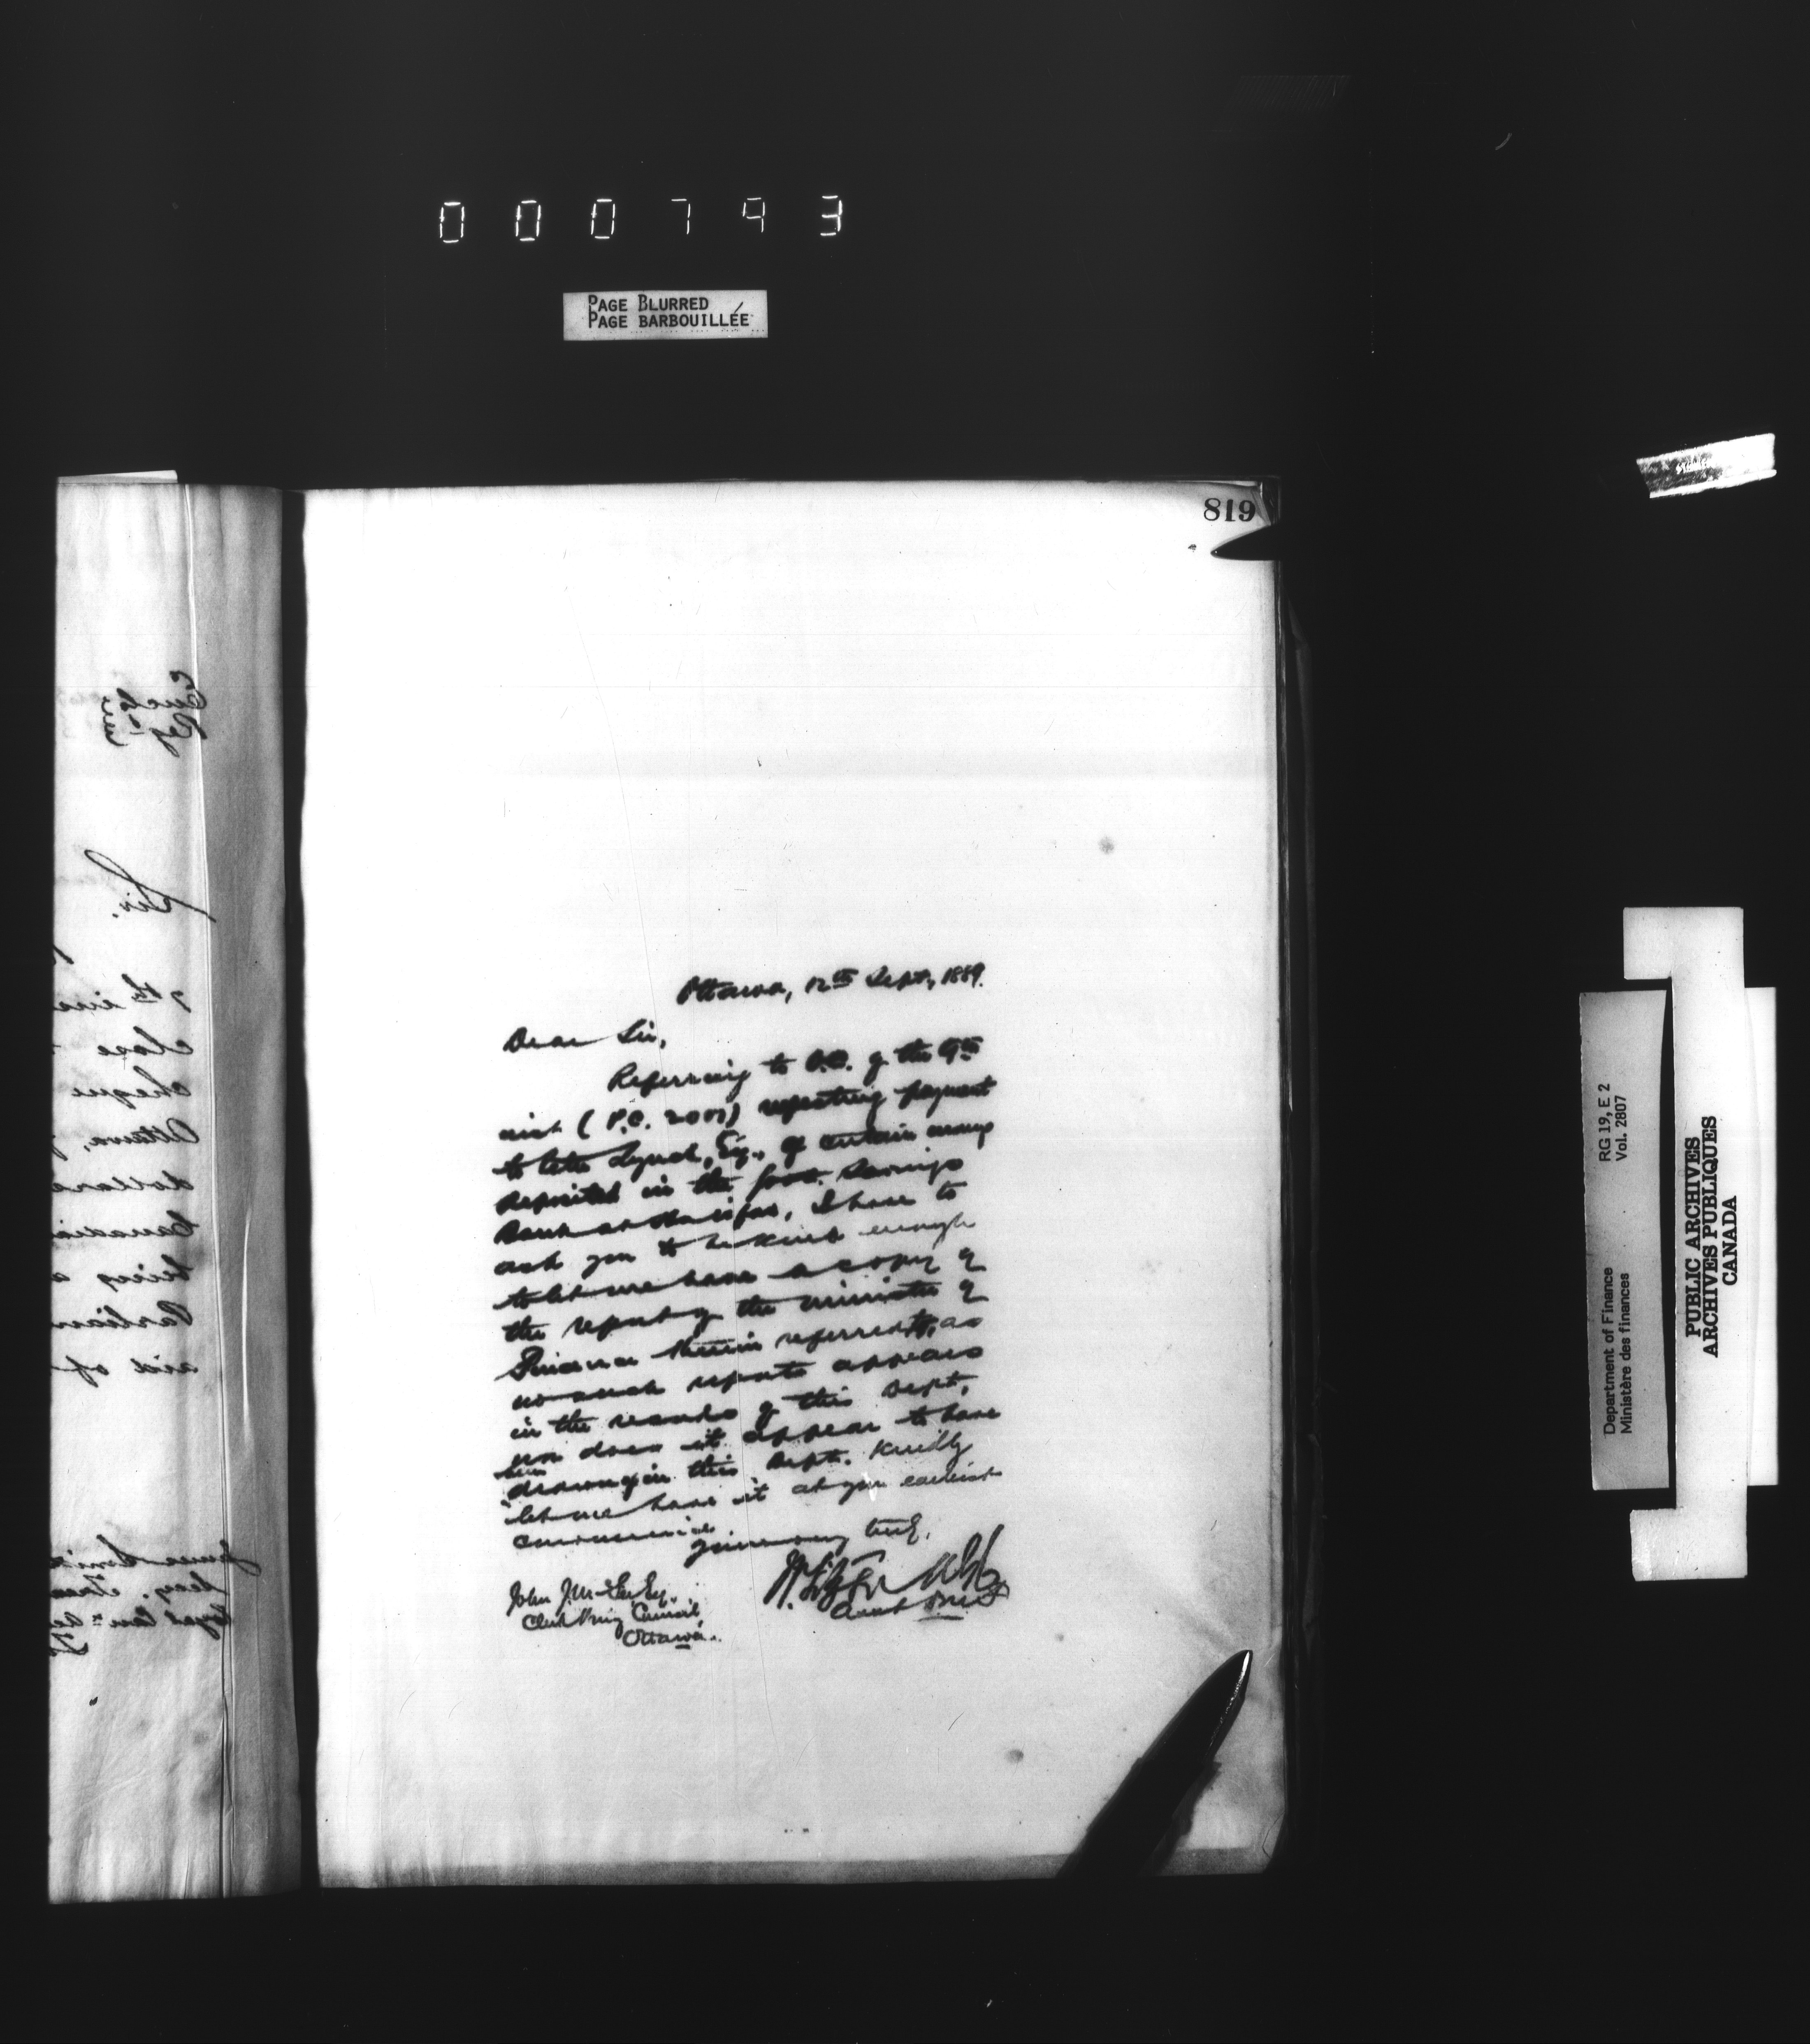 000793
PAGE BLURRED
PAGE BARBOUILLÉE
819
Ottawa, 12th Sept., 1889.
Dear Sir,
Referring to O.C. of the 9th
inst (P.C. 2007) reporting payment
to Lynch, Esq., of certain moneys
deposited in the Govt. Savings
Bank at Halifax, I have to
ask you to be kind enough
to let me have a copy of
the report of the Minister of
Finance therein referred to, as
no such report appears
in the records of this Dept,
nor does it appear to have
been
drawn up in this Dept. Kindly
let me have it at your earliest
convenience.
Yours very truly,
John J. McGee Esq.,
Clerk Privy Council,
Ottawa.
Sir.
7th
close
cheque
Ottawa,
dollars
Canadian
being a
aid of
RG 19, E 2
Vol. 2807
Department of Finance
Ministère des finances
PUBLIC ARCHIVES
ARCHIVES PUBLIQUES
CANADA